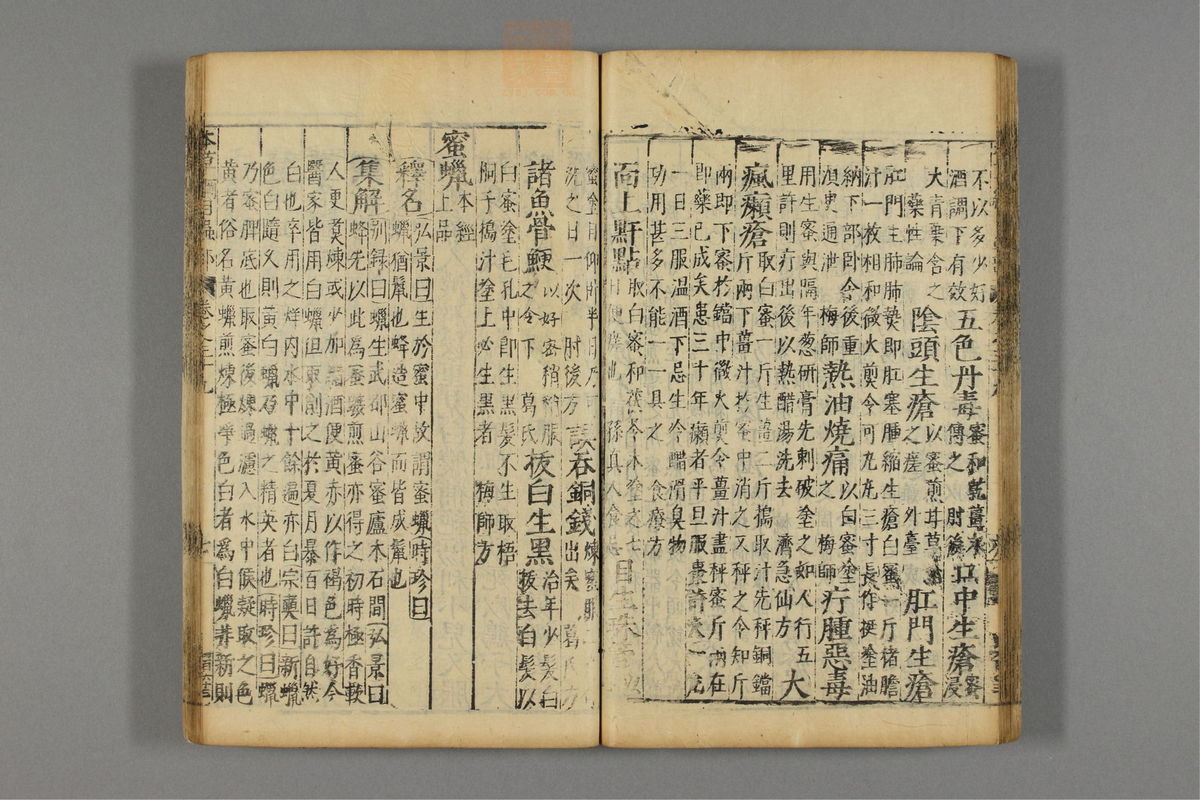 不以多少好 五色丹毒 蜜和乾薑末
酒調下有效 傅之 肘後 口中生瘡 蜜浸
大青葉含之 藥性論 陰頭生瘡 以蜜煎甘草
之瘥 外臺 肛門生瘡
肛門主肺肺熱即肛塞腫縮生瘡白蜜一斤猪膽
汁一枚相和微火熬令可丸丸三寸長作挺塗油
納下部臥令後重
須臾通泄 梅師 熱油燒痛 以白蜜塗之 梅師 疔腫惡毒
用生蜜與隔年葱研膏先刺破塗之如人行五
里許則疔出後以熱醋湯洗去 濟急仙方 大
瘋癩瘡 取白蜜一斤生薑二斤搗取汁先秤銅鐺
斤兩下薑汁於蜜中消之又秤之令知斤
兩即下蜜於鐺中微火熬令薑汁盡秤蜜斤兩在
即藥已成矣患三十年癩者平旦服棗許大一丸
一日三服温酒下忌生冷醋滑臭物
功用甚多不能一一具之 食療方
面上䵟點 取白蜜和茯苓末塗之七
日便瘥也 孫真人食忌 目生珠管 以
蜜塗目仰臥半日乃可
洗之日一次 肘後方 誤吞銅錢 煉蜜服
出矣 葛氏方
諸魚骨鯁 以好蜜稍稍服
之令下 葛氏 拔白生黑 治年少髮白
拔去白髮以
白蜜塗毛孔中即生黑髮不生取梧
桐子搗汁塗上必生黑者 梅師方
蜜蠟 本經上品
釋名 弘景曰生於蜜中故謂蜜蠟 時珍曰
蠟猶鬣也蜂造蜜蠟而皆成鬣也
集解 别録曰蠟生武都山谷蜜廬木石間 弘景曰
蜂先以此為蜜蹠煎蜜亦得之初時極香軟
人更煑煉或少加醋酒便黄赤以作燭色為好今
醫家皆用白蠟但取削之於夏月暴百日許自然
白也卒用之烊内水中十餘遍亦白 宗奭曰新蠟
色白隨久則黄白蠟乃蠟之精英者也 時珍曰蠟
乃蜜脾底也取蜜後煉過濾入水中候凝取之色
黄者俗名黄蠟煎煉極浄色白者為白蠟非新則